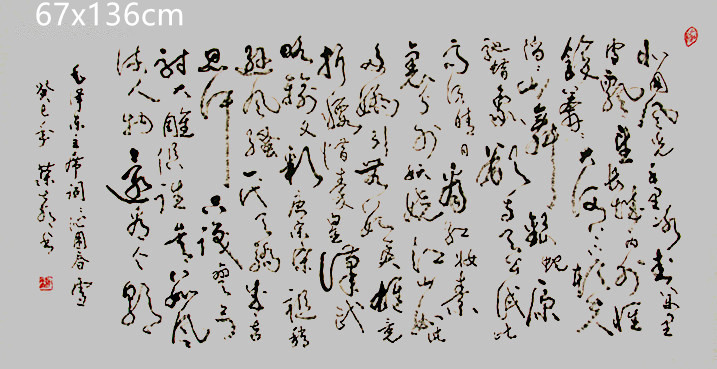 67x136cm
北国风光千里冰封万里
雪飘望长城内外惟
馀莽莽大河上下顿失
滔滔山舞银蛇原
驰蜡象欲与天公试比
高须晴日看红妆素
裹分外妖娆江山如此
多娇引无数英雄竞
折腰惜秦皇汉武
略输文彩唐宗宋祖稍
逊风骚一代天骄成吉
思汗只识弯弓
射大雕俱往矣数风
流人物还看今朝
毛泽东主席词沁园春雪
癸巳年